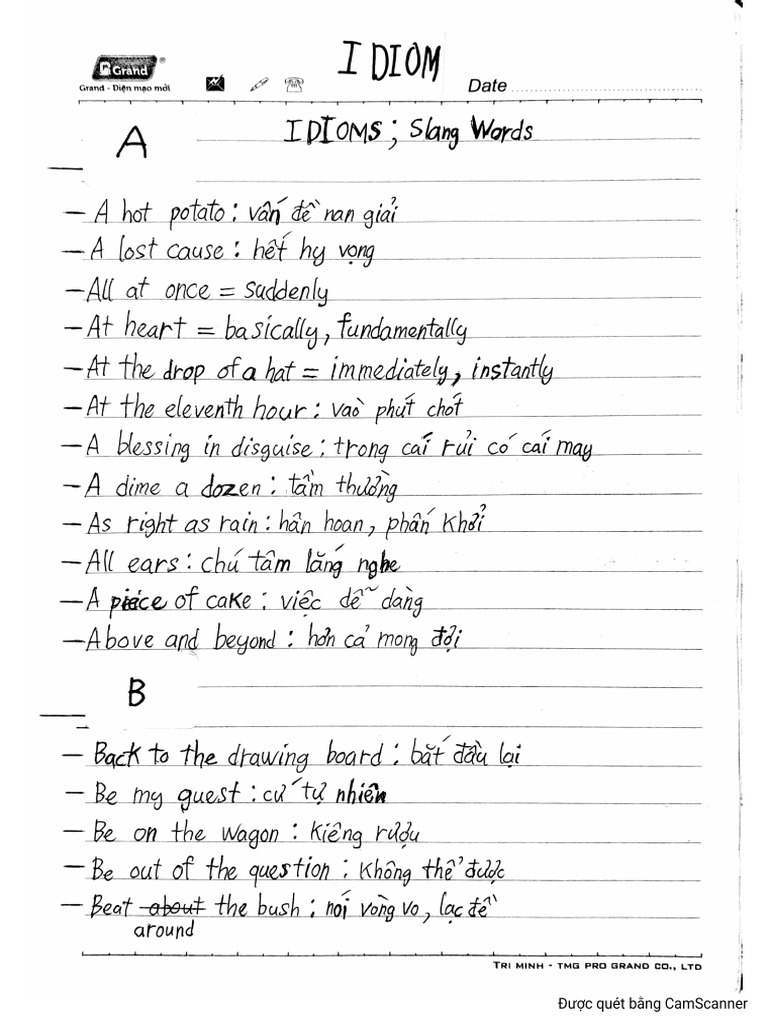 IDIOM
Grand
Grand - Diện mạo mới
Date
A
IDIOMS; Slang Words
- A hot potato: vấn đề nan giải
- A lost cause: hết hy vọng
- All at once = suddenly
- At heart = basically, fundamentally
- At the drop of a hat = immediately, instantly
- At the eleventh hour: vào phút chót
- A blessing in disguise: trong cái rủi có cái may
- A dime a dozen: tầm thường
- As right as rain: hân hoan, phấn khởi
- All ears: chú tâm lắng nghe
- A piece of cake: việc dễ dàng
- Above and beyond: hơn cả mong đợi
B
- Back to the drawing board: bắt đầu lại
- Be my guest: cứ tự nhiên
- Be on the wagon: kiêng rượu
- Be out of the question: không thể được
- Beat about the bush: nói vòng vo, lạc đề
around
TRI MINH - TMG PRO GRAND CO., LTD
Được quét bằng CamScanner